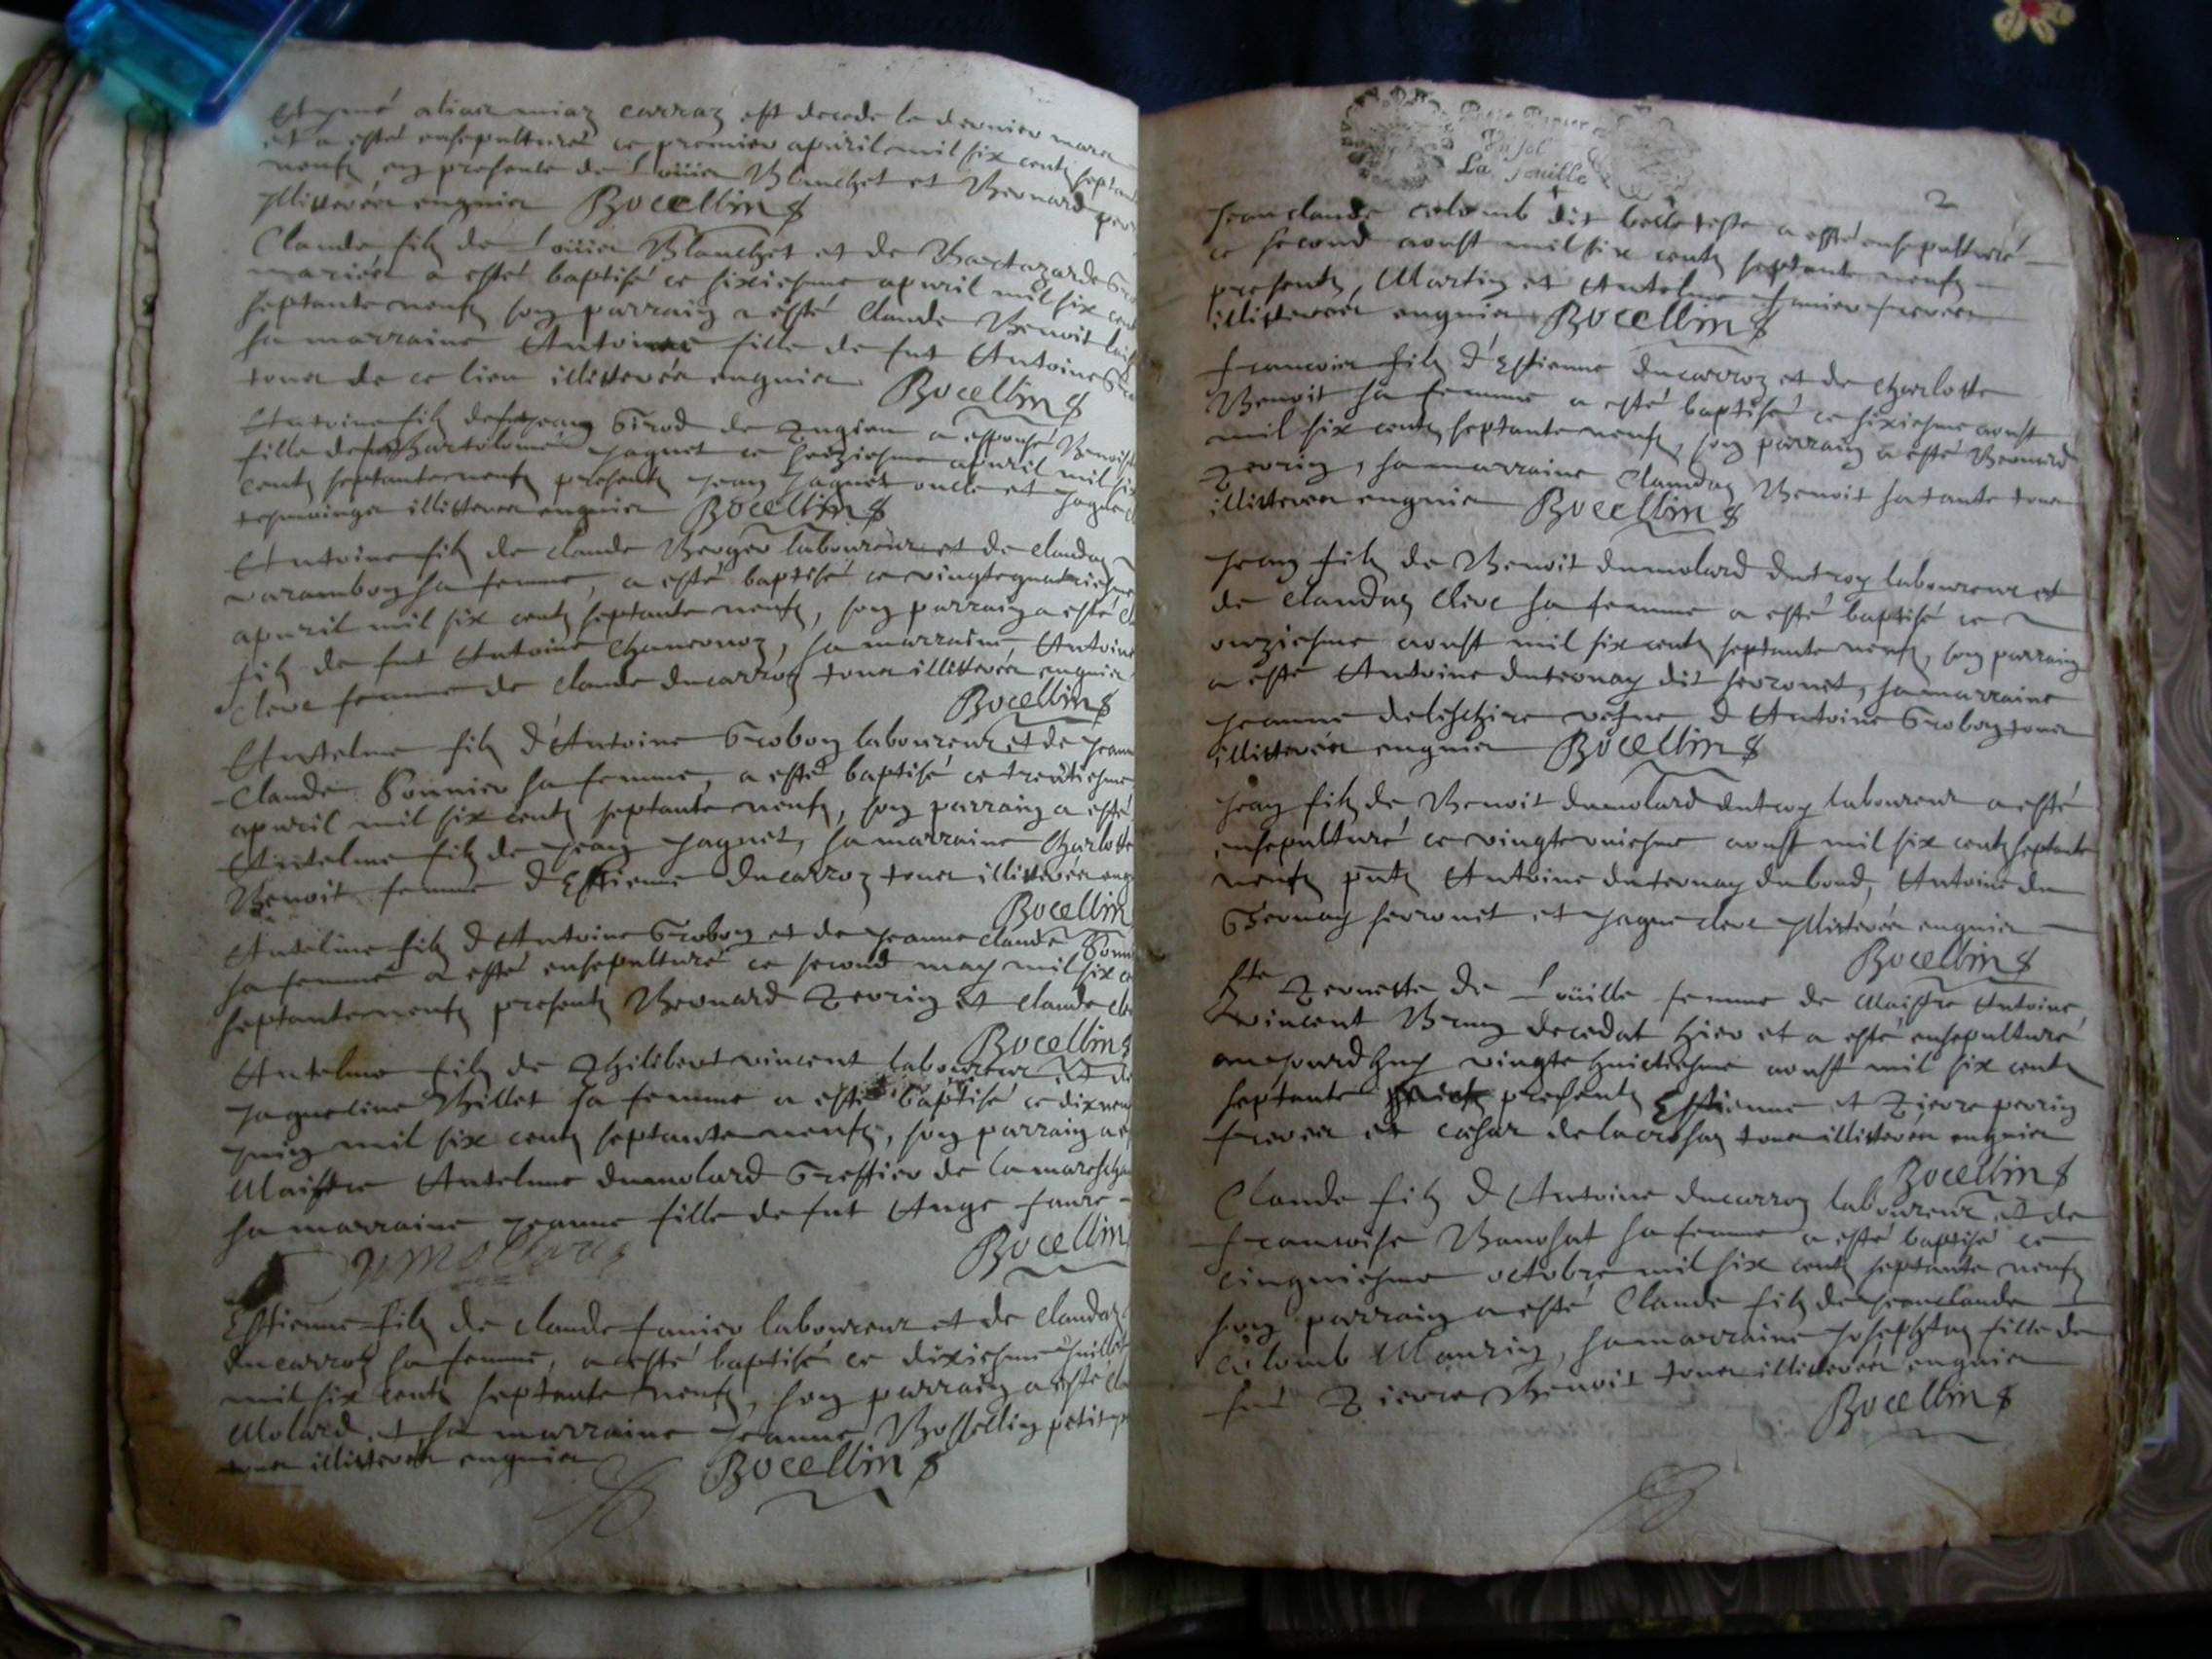 alias miaz carraz est decede le dernier mars
et a esté ensepulturé ce premier apuril mil six centz septan
neufz en presente de Loüis Blanchet et Bernard per
illitterés enquis Bocellin
Claude filz de Loüis Blanchet et de
mariés a esté baptisé ce sixiesme apuril mil six cent
septante neufz son parrain a esté Claude Benoit
sa marraine Antoine fille de fut Antoine
tous de ce lieu illitterés enquis Bocellin
Antoine filz de fut Jean Girod de a espousé Benoist
fille de fut Bartolomé Jaquet ce seiziesme apuril mil six
centz septante neufz presentz Jean Jaquet oncle et Jaque
tesmoings illitteres enquis Bocellin
Antoine filz de Claude Berger laboureur et de Claudaz
varambon sa femme, a esté baptisé ce vingtequatriesme
apuril mil six centz septante neufz, son parrain a esté
filz de fut Antoine, sa marraine Antoine
Cleve femme de Claude Ducarroz tous illitterés enquis
Bocellin
Antelme filz d'Antoine Grobon laboureur et de Jeanne
Claude Sonnier sa femme, a esté baptisé ce trentiesme
apuril mil six centz septante neufz, son parrain a esté
Antelme filz de Jean Jaquet, sa marraine Charlotte
Benoit femme d'Estienne Ducarroz tous illitterés enq
Bocellin
Antelme filz d'Antoine Grobon et de Jeanne Claude Sonn
sa femme a esté ensepulturé ce second may mil six c
septante neufz presentz Bernard Perrin et Claude
Bocellin
Antelme filz de Philibert vincent laboureur et de
Jaqueline Billet sa femme a esté baptisé ce dixneu
juin mil six centz septante neufz, son parrain a e
Maistre Antelme dumolard Greffier de la
sa marraine Jeanne fille de fut Ange faure
Bocellin
Estienne filz de Claude fanier laboureur et de Claudaz
Ducarroz sa femme, a esté baptisé ce dixiesme Juillet
mil six centz septante neufz, son parrain a esté Cla
Molard, et sa marraine Jeanne Bosselin petit
tous illitterés enquis Bocellin
La feuille
2
Jean claude colomb dit belleteste a esté ensepulturé
ce second aoust mil six centz septante neufz
presentz, Martin et Antelme fanier freres
illitterés enquis Bocellin
francois filz d'Estienne Ducarroz et de Charlotte
Benoit sa femme a esté baptisé ce sixiesme aoust
mil six centz septante neufz, son parrain a esté Bernard
Perrin, sa marraine Claudaz Benoit sa tante tous
illitteres enquis Bocellin
Jean filz de Benoit dumolard dutroy laboureur et
de Claudaz Cleve sa femme a esté baptisé ce
onziesme aoust mil six centz septante neufz, son parrain
a esté Antoine duternay dit ferronet, sa marraine
Jeanne vefve d'Antoine Grobon tous
illitterés enquis Bocellin
Jean filz de Benoit dumolard dutroy laboureur a esté
ensepulturé ce vingtevniesme aoust mil six centz septante
neufz pntz Antoine duternay dubond, Antoine du
ternay ferronet et Jaque Cleve illitterés enquis
Bocellin
Pernette de Loüille femme de Maistre Antoine
vincent Brun decedat hier et a esté ensepulturé
aujourdhuy vingte huictiesme aoust mil six centz
septante presentz Estienne et Pierre perrin
freres et cesar tous illitterés enquis
Bocellin
Claude filz d'Antoine ducarroz laboureur et de
francoise sa femme a esté baptisé ce
cinquiesme octobre mil six centz septante neufz
son parrain a esté Claude filz de Jeanclaude
Colomb Maurin, sa marraine Josephtaz fille de
fut Pierre Benoit tous illitterés enquis
Bocellin